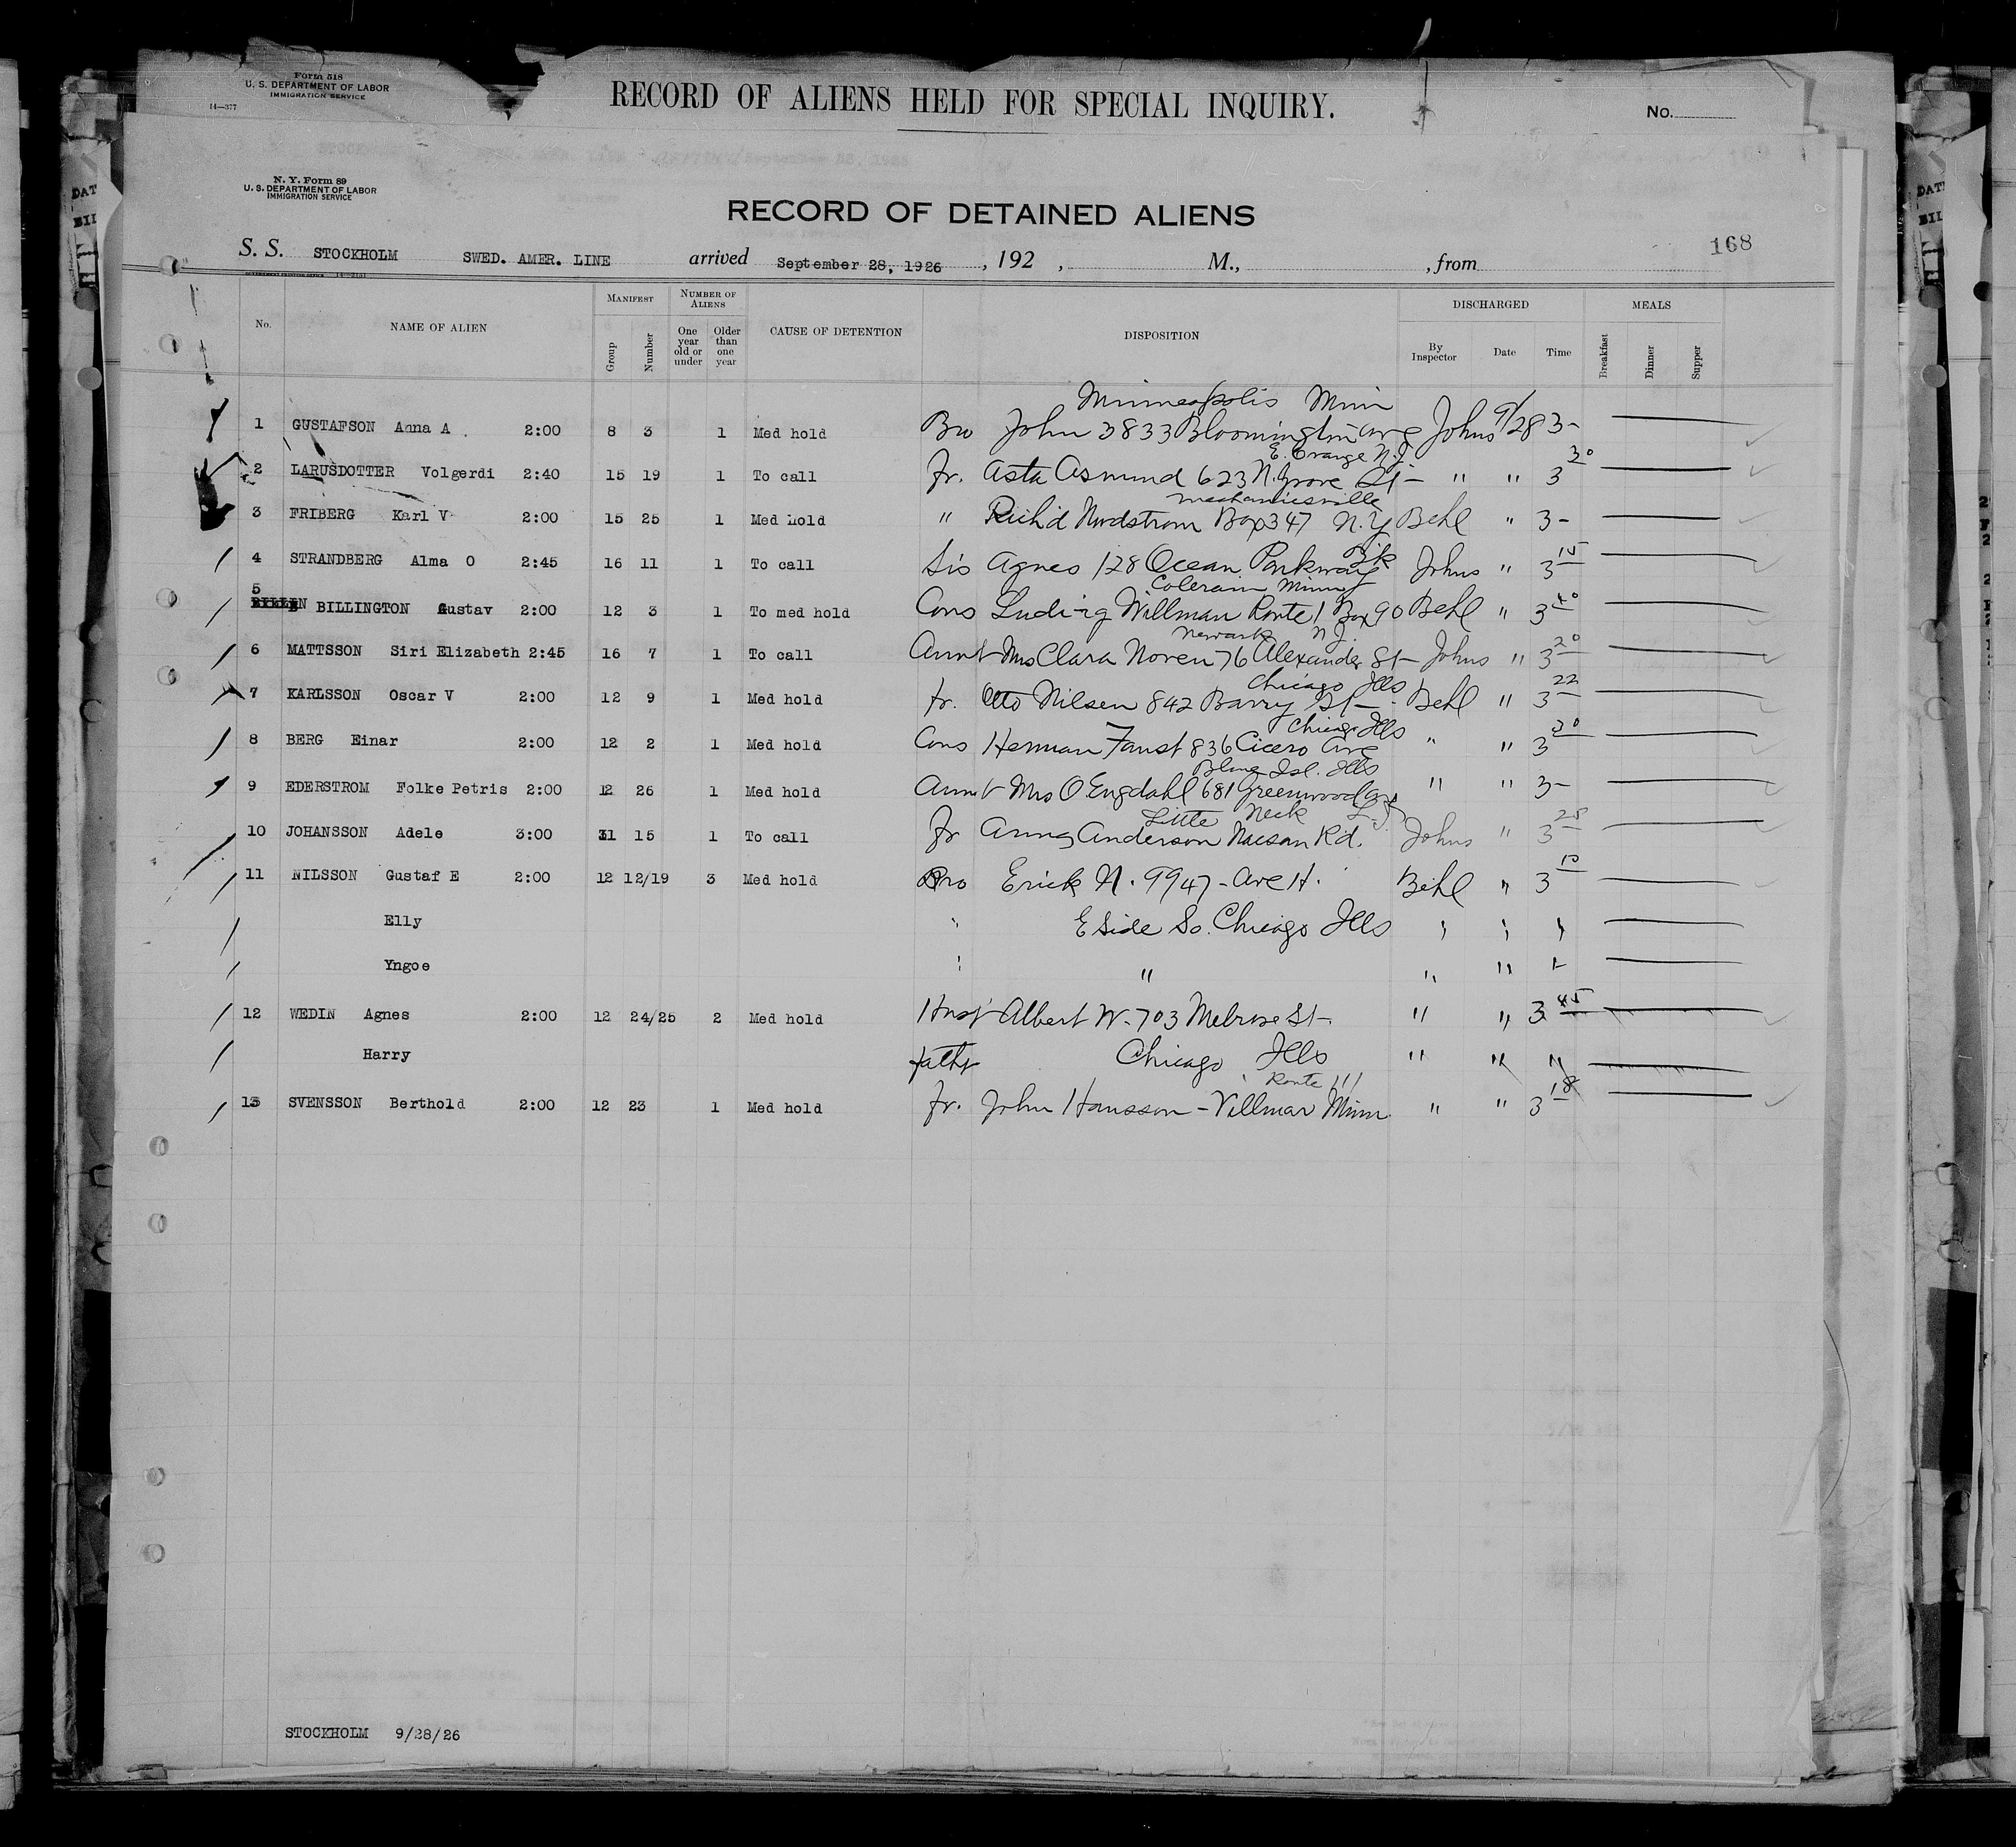 Form 518
U. S. DEPARTMENT OF LABOR
IMMIGRATION SERVICE
14—377
RECORD OF ALIENS HELD FOR SPECIAL INQUIRY.
No.
N. Y. Form 89
U. S. DEPARTMENT OF LABOR
IMMIGRATION SERVICE
RECORD OF DETAINED ALIENS
168
S. S. STOCKHOLM SWED. AMER. LINE arrived September 28, 1926 , 192 , M., , from
No. NAME OF ALIEN MANIFEST Group Number NUMBER OF ALIENS One year old or under Older than one year CAUSE OF DETENTION DISPOSITION DISCHARGED By Inspector Date Time MEALS Breakfast Dinner Supper
Minneapolis Minn
1 GUSTAFSON Anna A 2:00 8 3 1 Med hold Bro John 3833 Bloomington Ave Johns 9/28 3-
E. Orange N.J
2 LARUSDOTTER Volgerdi 2:40 15 19 1 To call Fr. Asta Asmund 623 N. Grove St- " " 3 30
Mechanicsville
3 FRIBERG Karl V 2:00 15 25 1 Med hold " Rich'd Nordstrom Box 347 N.Y Behl " 3-
Bk
4 STRANDBERG Alma O 2:45 16 11 1 To call Sis Agnes 128 Ocean Parkway Johns " 3 15
Colerain Minn
5 BILLINGTON Gustav 2:00 12 3 1 To med hold Cous Ludvig Willman Route 1 Box 90 Behl " 3 40
Newark N.J.
6 MATTSSON Siri Elizabeth 2:45 16 7 1 To call Aunt Mrs Clara Noren 76 Alexander St- Johns " 3 20
Chicago Ills
7 KARLSSON Oscar V 2:00 12 9 1 Med hold fr. Otto Nilsen 842 Barry St- Behl " 3 22
Chicago Ills
8 BERG Einar 2:00 12 2 1 Med hold Cous Herman Faust 836 Cicero Ave " " 3 30
Blue Isl. Ills
9 EDERSTROM Folke Petris 2:00 12 26 1 Med hold Aunt Mrs O Engdahl 681 Greenwood Ave " " 3-
Little Neck L.I.
10 JOHANSSON Adele 3:00 31 15 1 To call Fr Anna Anderson Rd. Johns " 3 25
11 NILSSON Gustaf E 2:00 12 12/19 3 Med hold Bro Erick N. 9947- Ave H. Behl " 3 10
Elly " E Side So. Chicago Ills " " "
Yngoe " " " " "
12 WEDIN Agnes 2:00 12 24/25 2 Med hold Husb Albert W. 703 Melrose St- " " 3 45
Harry fathr Chicago Ills " " "
Route 111
13 SVENSSON Berthold 2:00 12 23 1 Med hold Fr. John Hansson - Villmar Minn " " 3 18
STOCKHOLM 9/28/26